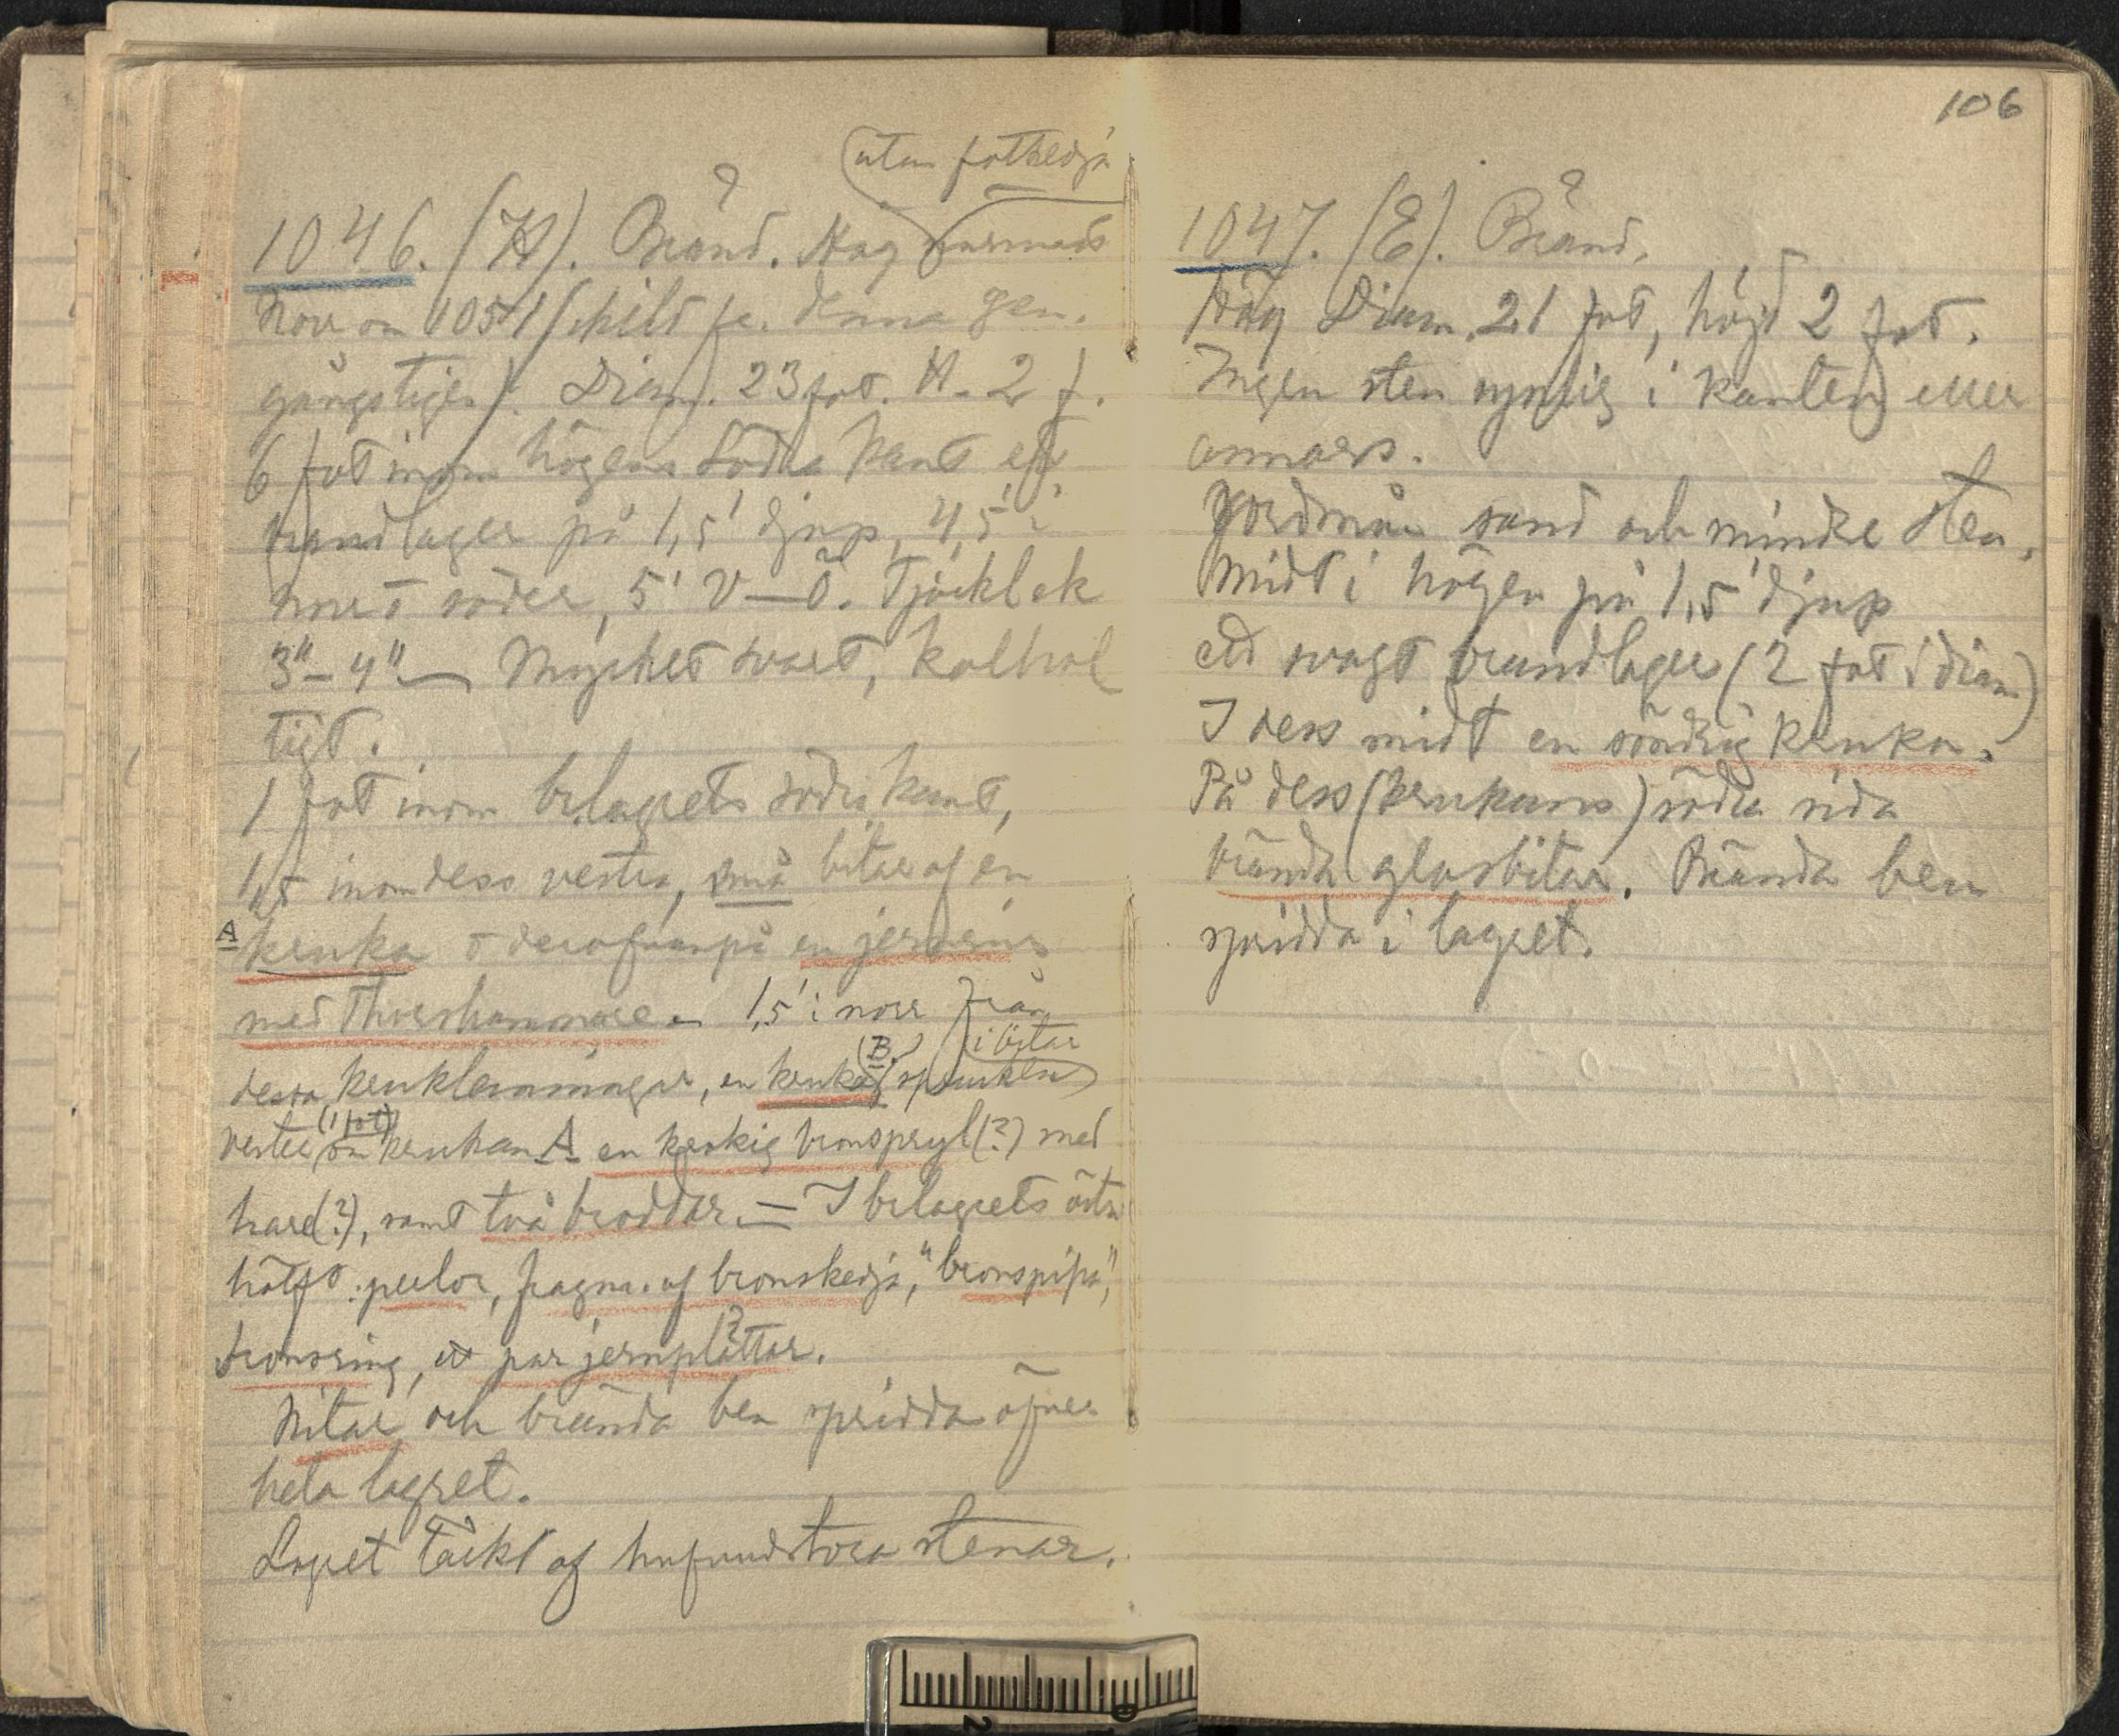 utan fotkedja
1046. (H). Bränd. Hög närmast
norr om 1051 (skild fr. denna gen.
gångstigen). Diam. 23 fot. H. 2 f.
6 fot inom högens södra kant ett
brandlager på 1,5' djup, 4,5' i
norr söder, 5' V–Ö. Tjocklek
3"–4" – Mycket svart, kolhal
tigt.
1 fot inom brlagrets södra kant,
1,5 inom dess vestra, små bitar af en
A kruka o derofvanpå en jernring
med Thorshammare. 1,5' i norr från
dessa kruklemningar, en kruka (B.) (sprucken i bitar)
vester (1 fot) om krukan A en krokig bronspryl (?) med
hare(?), samt två broddar. – I brlagrets östra
hälft: perlor, fragm. af bronskedja, "bronspipa",
bronsring, ett par jernplattar?.
Nitar och brända ben spridda öfver
hela lagret.
Lagret täckt af hufvudstora stenar.
106
1047. (E). Bränd.
Hög Diam. 21 fot, höjd 2 fot.
Ingen sten synlig i kanten eller
annars.
Jordmån sand och mindre sten.
Midt i högen på 1,5' djup
ett svagt brandlager (2 fot i diam)
I dess midt en söndrig kruka.
På dess (krukans) södra sida
brända glasbitar. Brända ben
spridda i lagret.